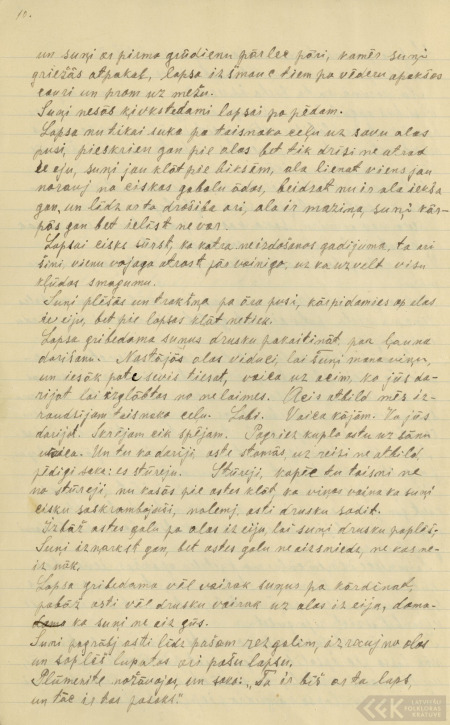 10.
un suņi ar pirmo grūdienu pārlec pāri, kamēr suņi
griežās atpakaļ, lapsa izšmauc tiem pa vēderu apakšas
cauri un prom uz mežu.
Suņi nesās ķivkstēdami lapsai pa pēdam.
Lapsa nu tikai suko pa taisnako ceļu uz savu alas
pusi, pieskrien gan pie alas bet tik driši ne atrod
ieeju, suņi jau klāt pie biksēm, ala lienot viens jau
norauj no ciskas gabalu ādas, beidzot nu ir ala iekša
gan, un līdz ar to drošiba ari, ala ir maziņa, suņi kār-
pās gan bet ielist nevar.
Lapsai cisks sūrst, ka katra neizdošanos gadijuma, ta ari
šini, vienu vajaga atrast par vainigo, uz ka uzvelt visu
kļūdas smagumu.
Suņi plēšās un trakšņa pa āra pusi, kārpidamies ap alas
ieeju, bet pie lapsas klāt netiek.
Lapsa gribedama suņus drusku pakaitināt, par ļauna
darišanu. Nostājās alas viduci, lai suņi mana viņu,
un iesāk pate sevis tiesat, vaica uz acim, ko jūs da-
rijat lai izglābtos no nelaimes. Acis atbild mēs iz-
raudzijam taisnako ceļu. Labi. Vaica kājām. Ko jūs
darijāt. Skrējam cik spējam. Pagriež kuplo asti uz sānu
vaica. Un tu ko dariji, aste stomās, uz reizi ne atbild
pēdigi saka: es stūreju. Stūreji, kapēc tu taisni ne
no stūreji, nu kasās pie astes klāt, ka viņas vaina ka suņi
cisku saskrambājuši, nolemj, asti drusku sodit.
Izbāž astes galu pa alas izeju, lai suņi drusku paplēš.
Suņi izņarkst gan, bet astes galu ne aizsniedz, ne kas ne-
iznāk.
Lapsa gribedama vēl vairak suņus pa kārdinat,
pabāž asti vēl drusku vairak uz alas izeju, doma-
ka suņi ne aizgūs.
Suņi pagrābj asti līdz pašam rezgalim, izrauj no alas
un saplēš lupatas ari pašu lapsu.
Plūmenite nožāvājas un saka: "Tā ir bij' ar to laps,
un tāc ir tas pasaks."
LATVIEŠU FOLKLORAS KRĀTUVE